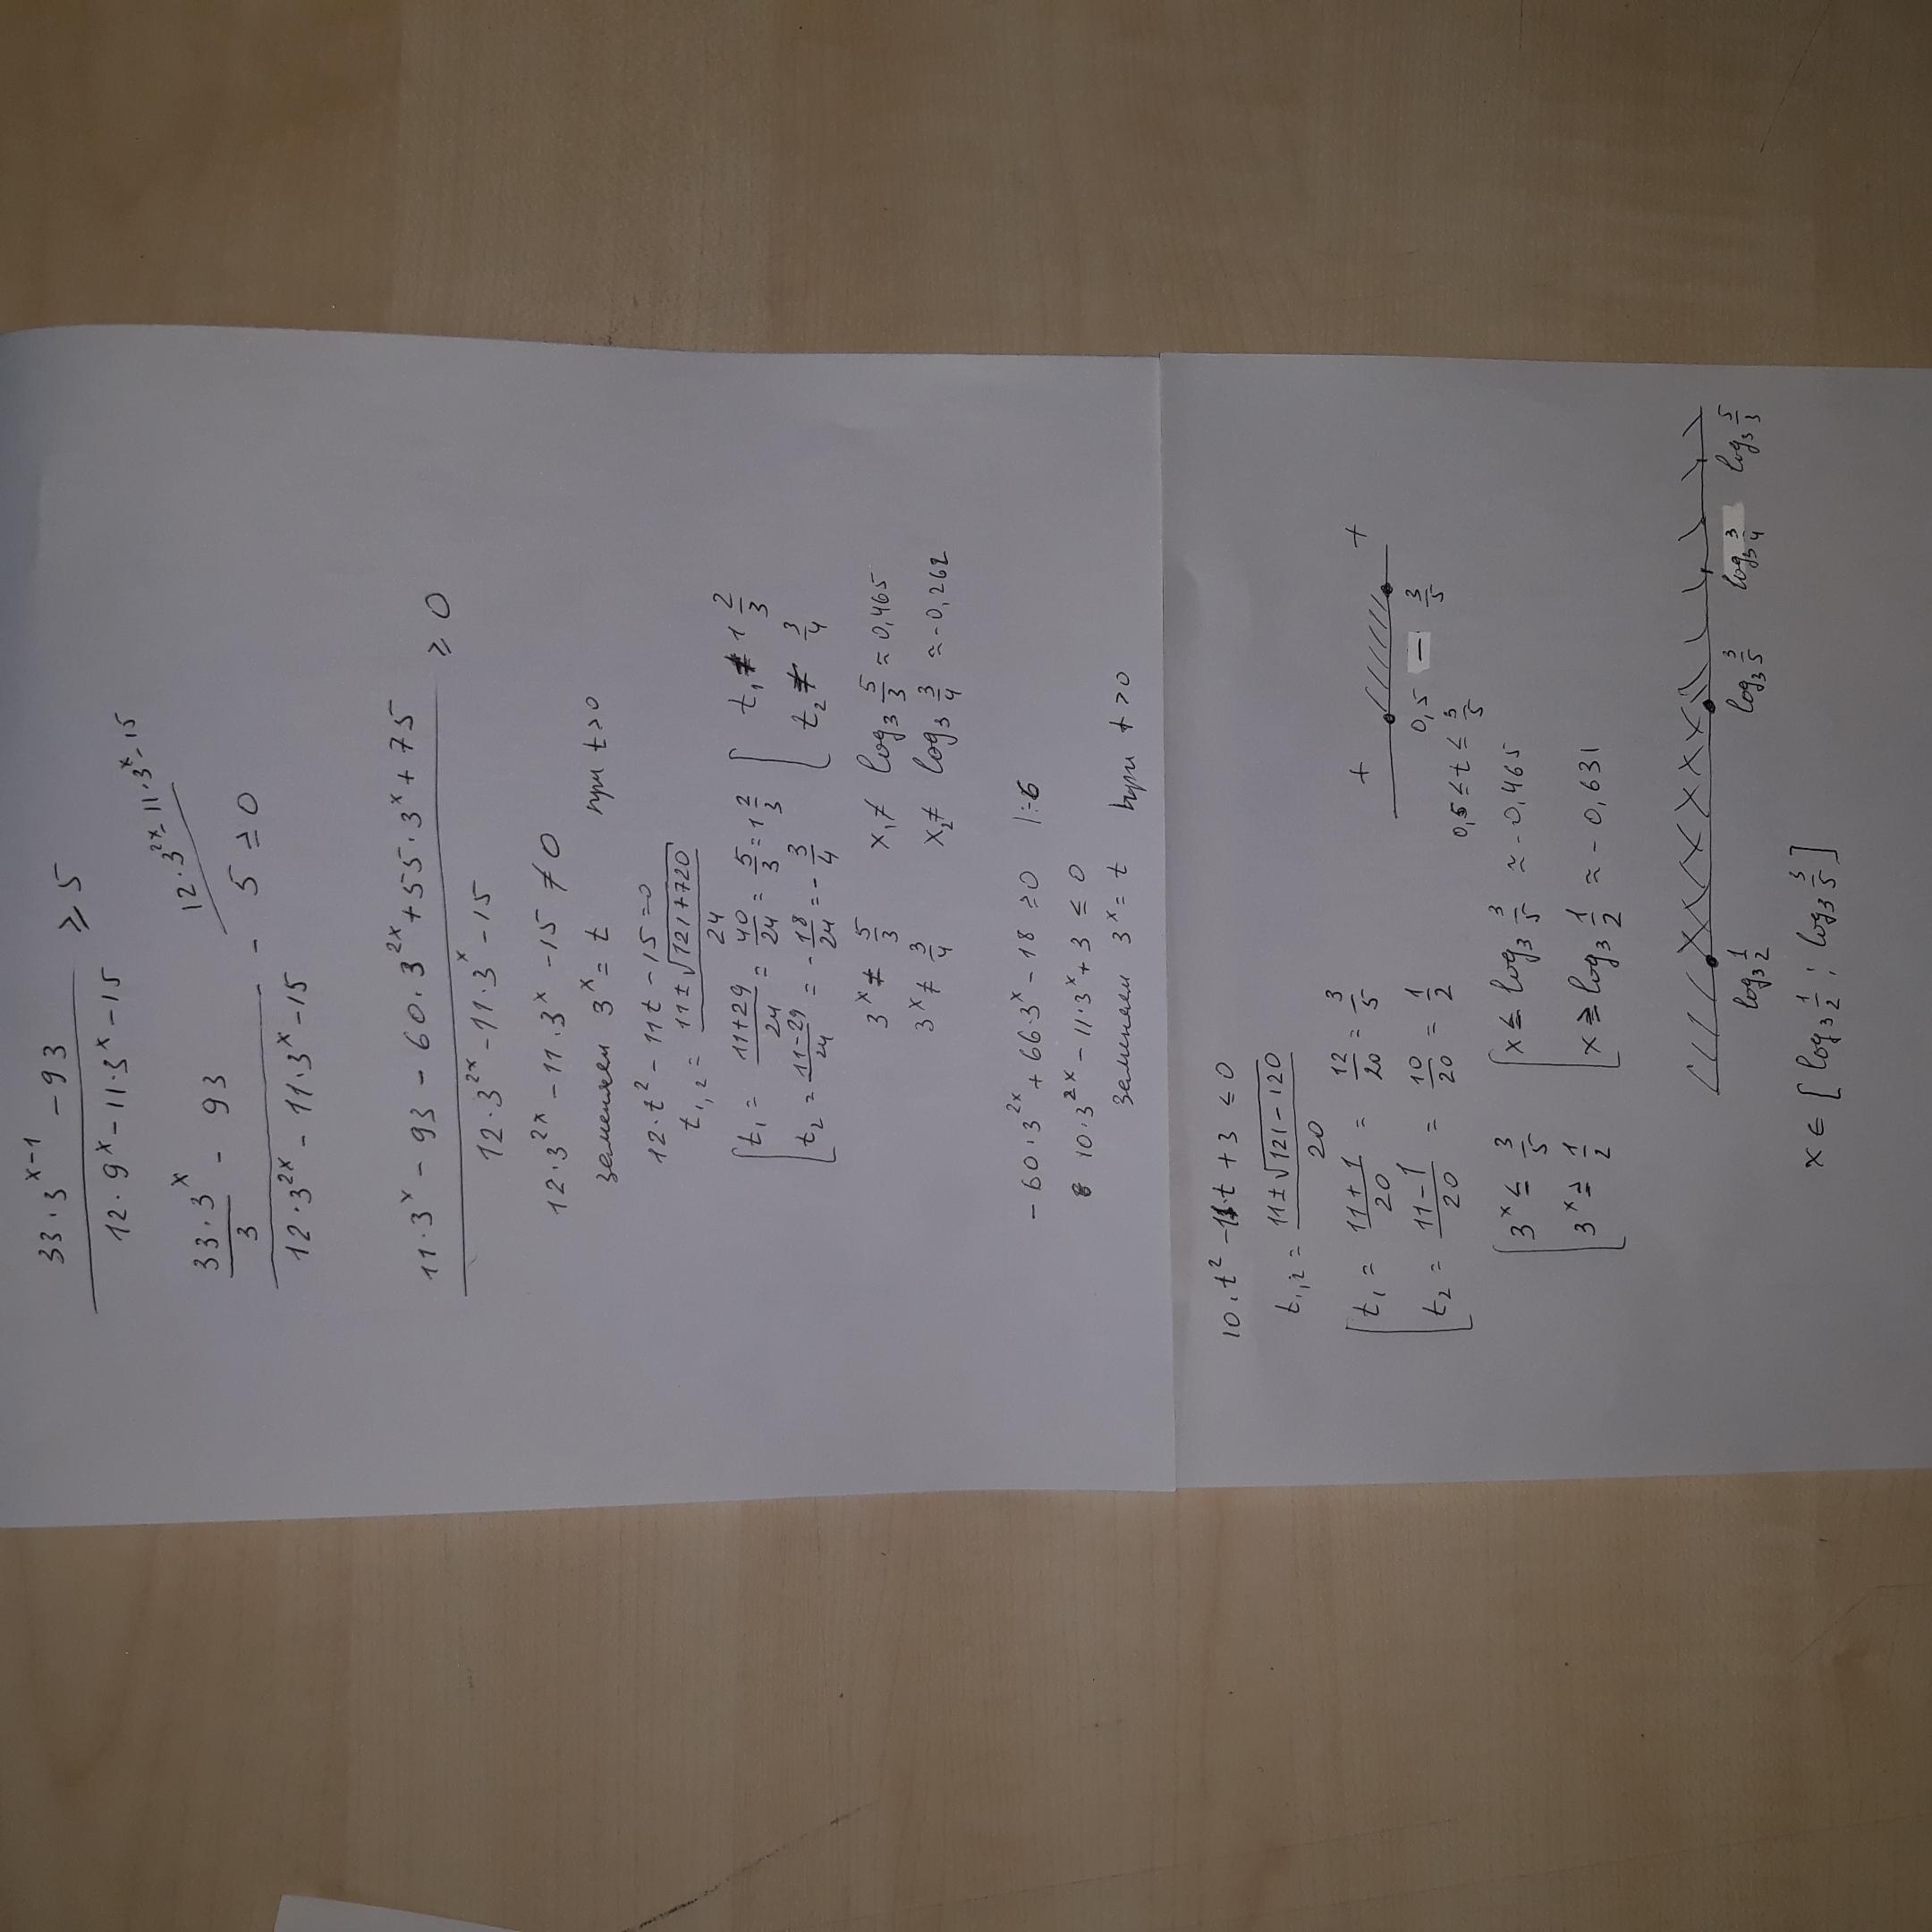 33·3^(x-1) - 93 / 12·9^x - 11·3^x - 15 ≥ 5
33·3^x / 3 - 93 / 12·3^(2x) - 11·3^x - 15 - 5 ≥ 0 12·3^(2x) - 11·3^x - 15
11·3^x - 93 - 60·3^(2x) + 55·3^x + 75 / 12·3^(2x) - 11·3^x - 15 ≥ 0
12·3^(2x) - 11·3^x - 15 ≠ 0
заменяем 3^x = t при t>0
12·t² - 11t - 15 = 0
t₁,₂ = 11 ± √(121+720) / 24
[ t₁ = 11+29 / 24 = 40/24 = 5/3 = 1 2/3 [ t₁ ≠ 1 2/3
t₂ = 11-29 / 24 = - 18/24 = - 3/4 t₂ ≠ 3/4
3^x ≠ 5/3 x₁ ≠ log₃ 5/3 ≈ 0,465
3^x ≠ 3/4 x₂ ≠ log₃ 3/4 ≈ -0,262
- 60·3^(2x) + 66·3^x - 18 ≥ 0 |:6
10·3^(2x) - 11·3^x + 3 ≤ 0
заменяем 3^x = t при t>0
10·t² - 11·t + 3 ≤ 0
t₁,₂ = 11 ± √(121-120) / 20
[ t₁ = 11+1 / 20 = 12/20 = 3/5
t₂ = 11-1 / 20 = 10/20 = 1/2
+ +
0,5 - 3/5
0,5 ≤ t ≤ 3/5
[ 3^x ≤ 3/5 [ x ≤ log₃ 3/5 ≈ -0,465
3^x ≥ 1/2 x ≥ log₃ 1/2 ≈ -0,631
log₃ 1/2 log₃ 3/5 log₃ 3/4 log₃ 5/3
x ∈ [log₃ 1/2 ; log₃ 3/5]